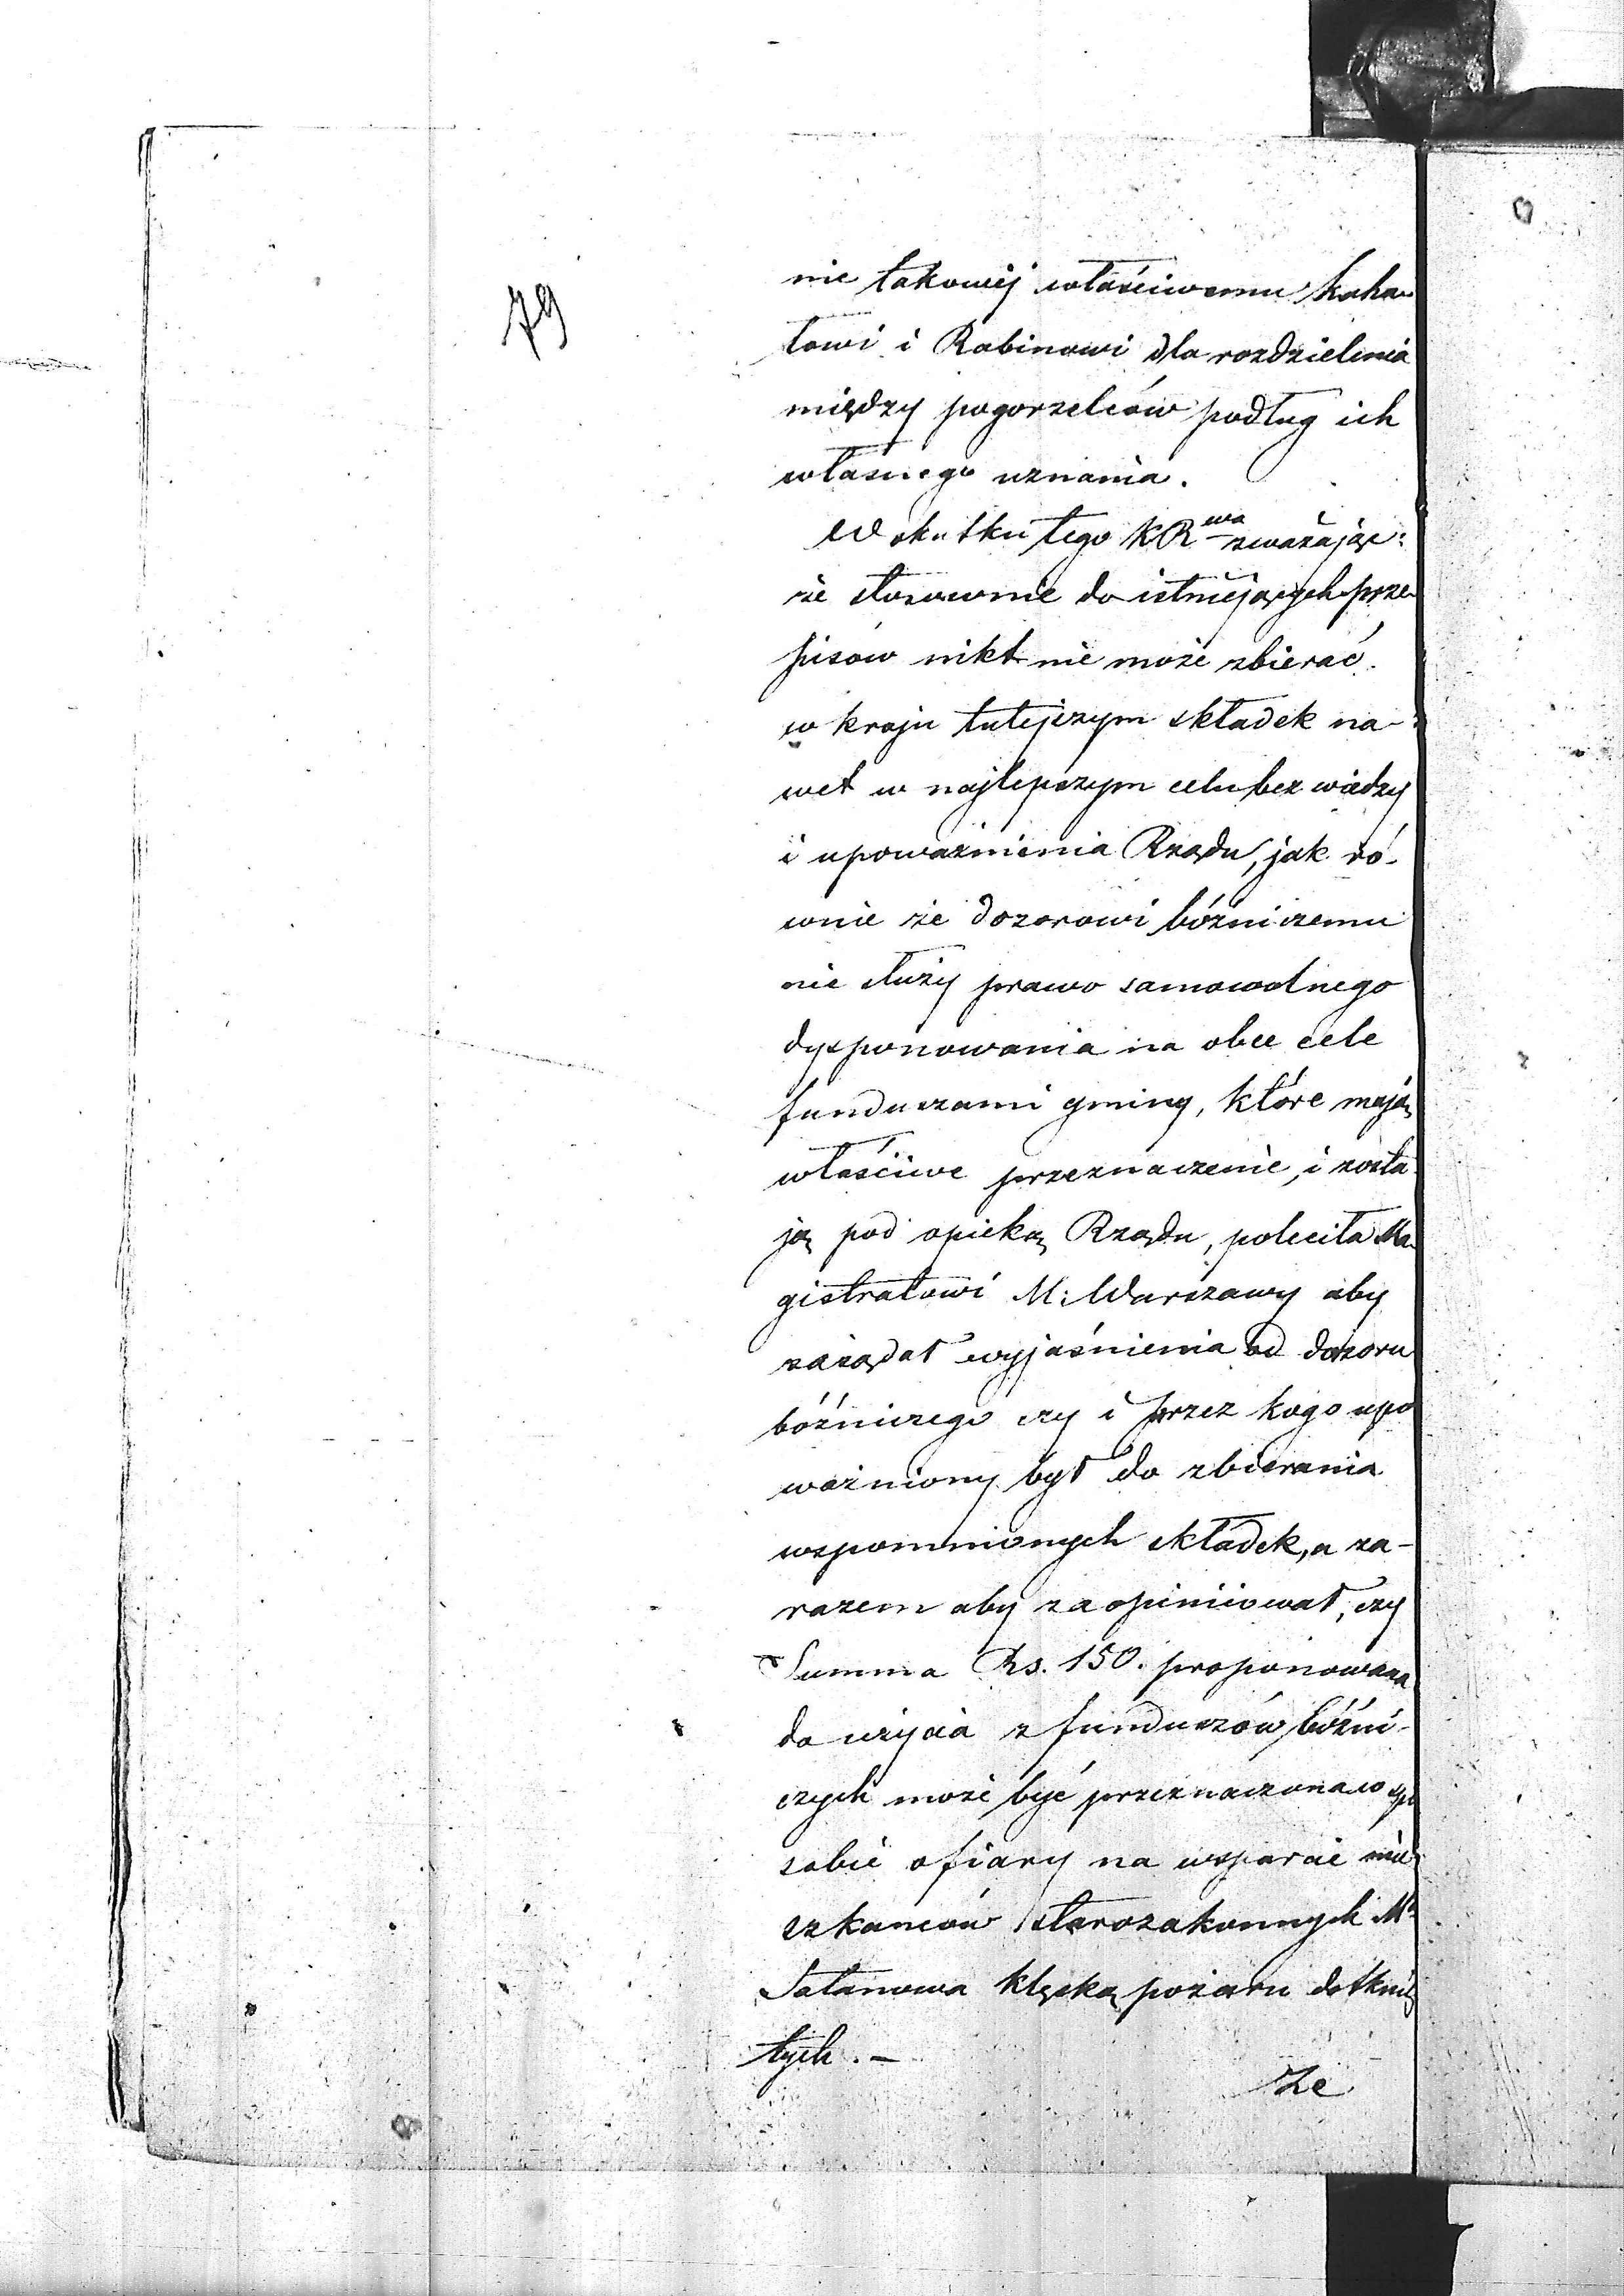 79
nie takowéj właściwemu kaha-
łowi i Rabinowi dla rozdzielenia
między pogorzelców podług ich
własnego uznania.
W skutku tego KR wa zważając:
że stosownie do istniejących prze-
pisów nikt nie może zbierać
w kraju tutejszym składek na-
wet w najlepszym celu bez wiedzy
i upoważnienia Rządu, jak ró-
wnie że dozorowi bóżniczemu
nie służy prawo samowolnego
dysponowania na obce cele
funduszami gminy, które mają
właściwe przeznaczenie, i zosta
ją pod opieką Rządu, poleciła Ma
gistratowi M: Warszawy aby
zażądał wyjaśnienia od dozoru
bóźniczego czy i przez kogo upo
ważniony był do zbierania
wspomnionych składek, a za-
razem aby zaopiniował, czy
Summa Rs. 150. proponowana
do użycia z funduszów bóźni-
czych może być przeznaczona w spo
sobie ofiary na wsparcie mie
szkańców starozakonnych Mta
Satanowa klęską pożaru dotknię
tych. —
Ze